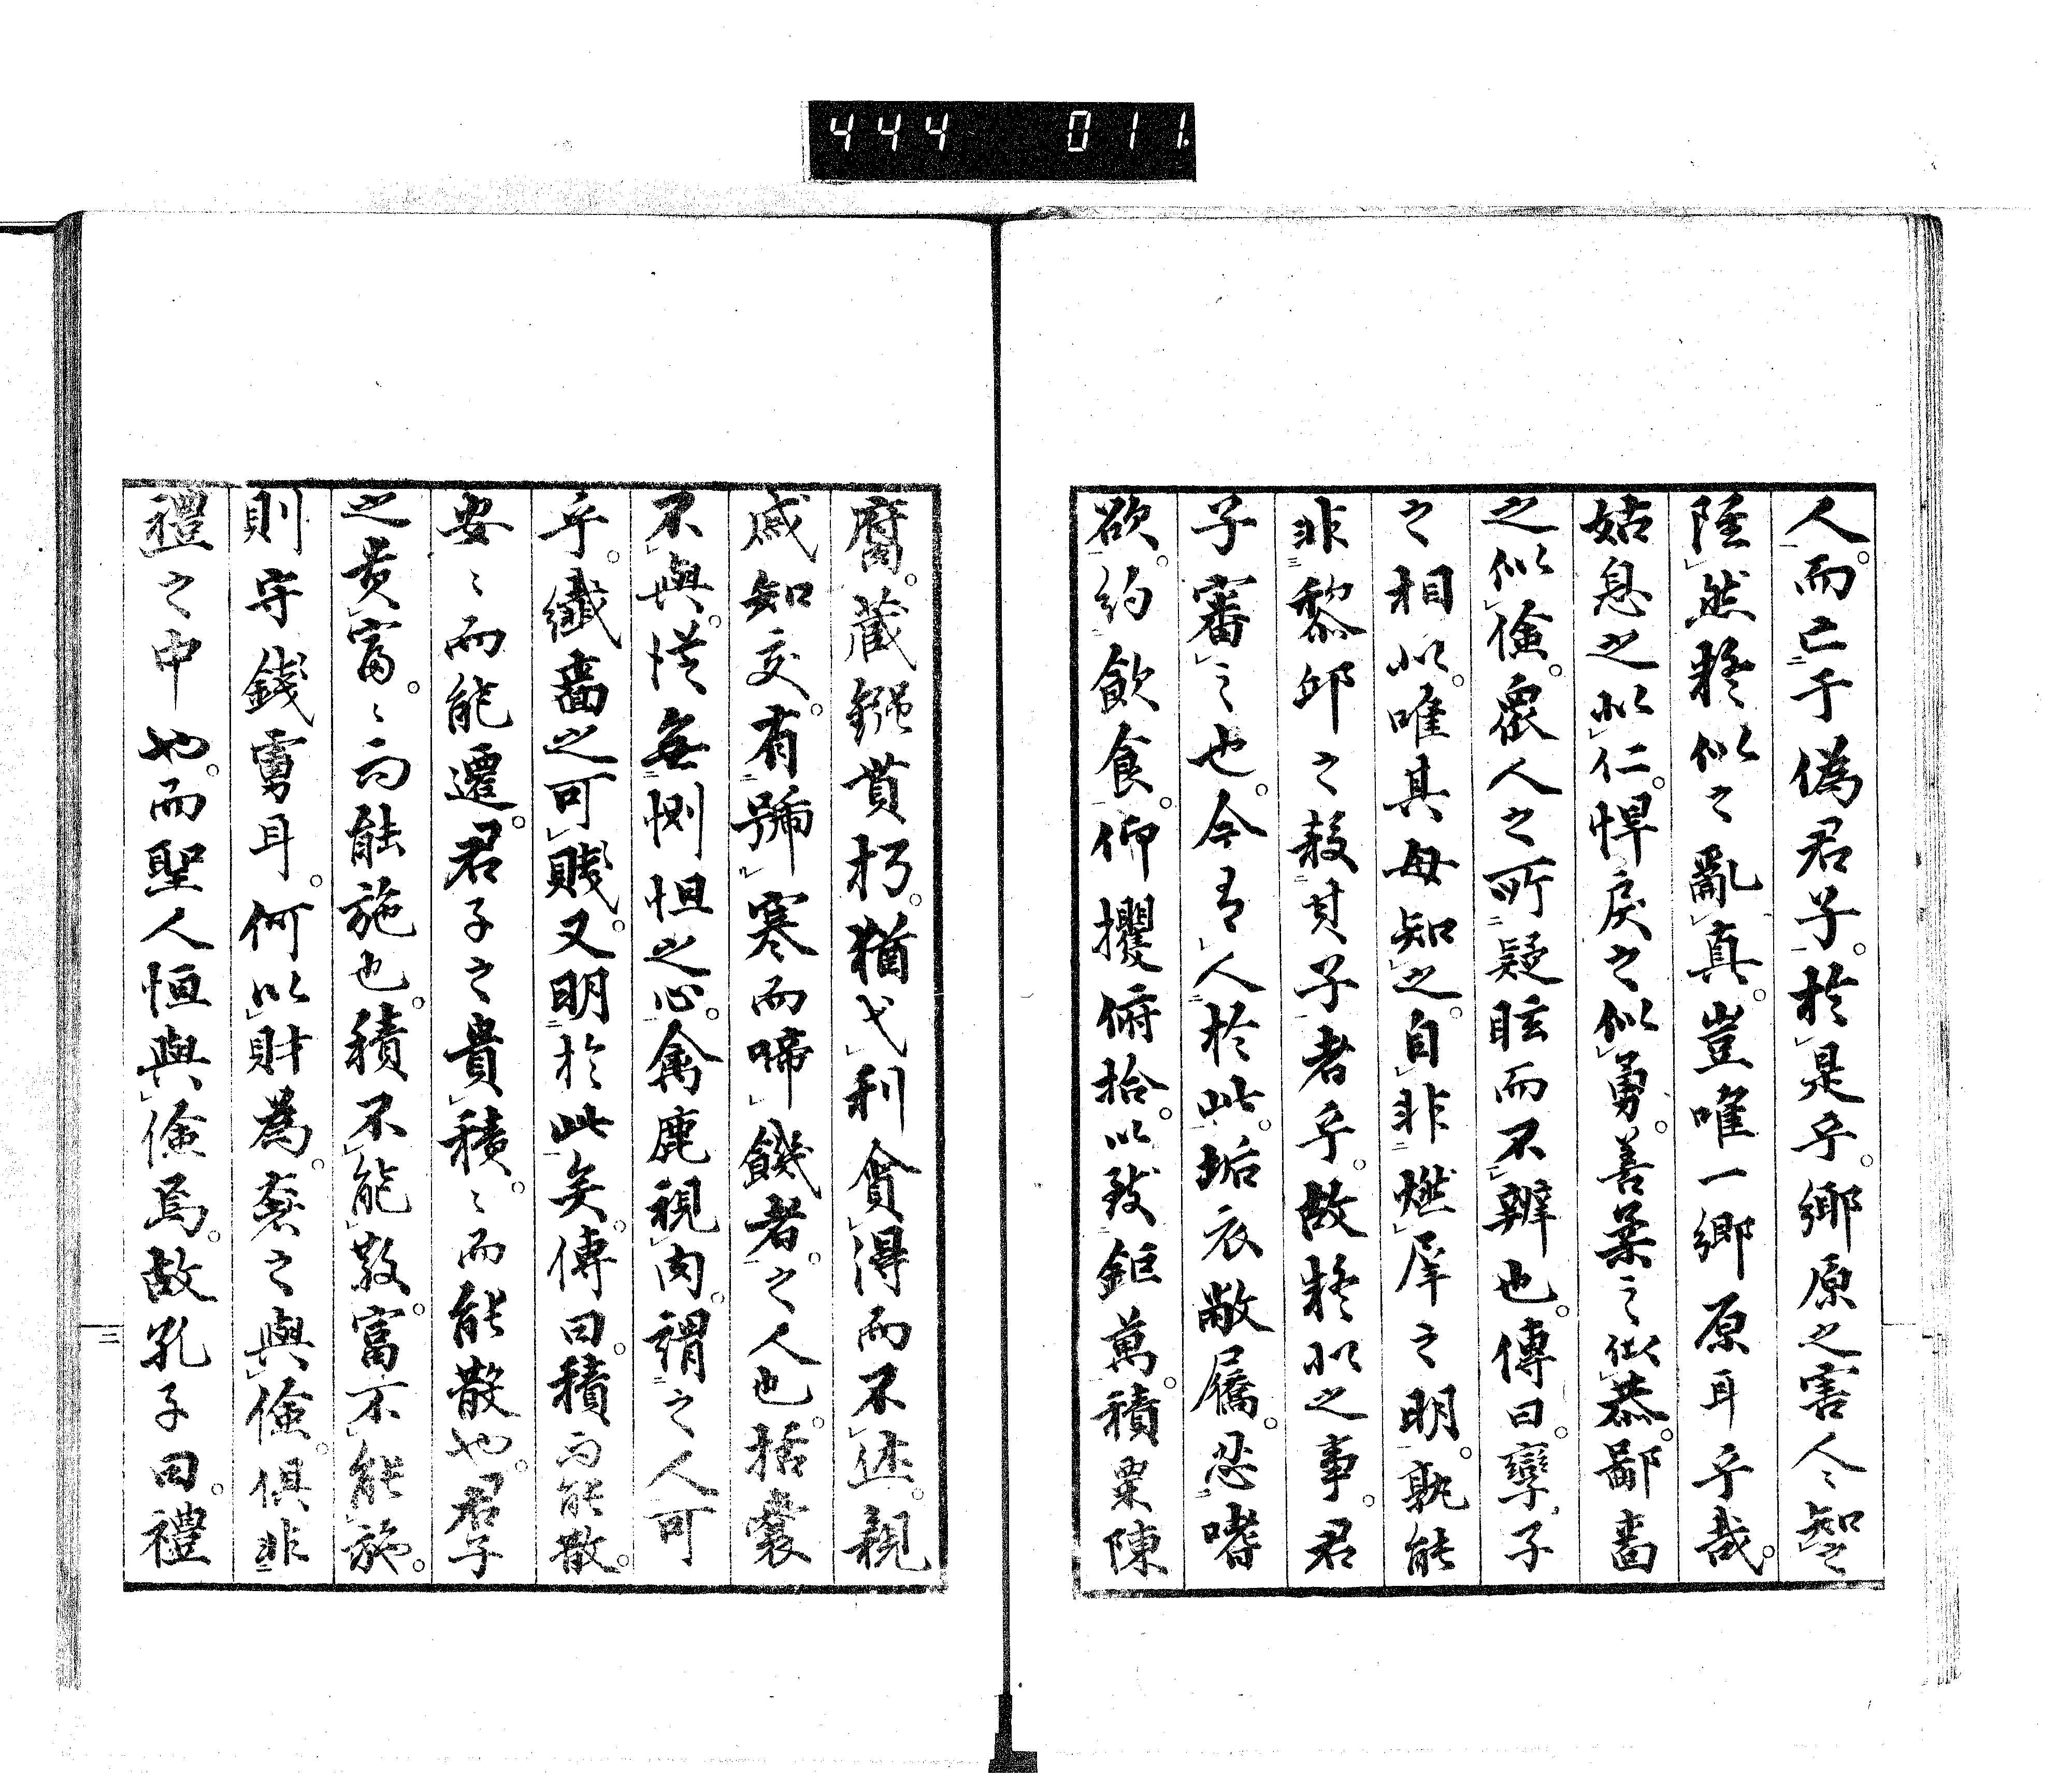 人。而亡于偽君子。於是乎。鄉原之害人〻知之
然疑似之亂真。豈唯一鄉原耳乎哉。
姑息之似仁。悍戾之似勇。善柔之似恭。鄙嗇
之似儉。衆人之所疑眩而不辨也。傳曰。孿子
之相似。唯其母知之。自非燃犀之明。孰能
非黎邱之殺其子者乎。故疑似之事。君
子審之也。今有人於此。垢衣敝屩。忍嗜
欲。約飲食。仰攫俯拾。以致鉅萬。積粟陳
腐。藏鏹貫朽。猶弋利貪得而不。親
戚知交。有號寒而啼饑者。之人也。括囊
不與。漠無惻怛之心。禽鹿視肉。謂之人可
乎。纖嗇之可賤。又明於此矣。傳曰。積而能散。
安〻而能遷。君子之貴積。〻而能散也。君子
之貴富。〻而能施也。積不能散。富不能施。
則守錢虜耳。何以財為。奢之與儉。俱非
禮之中也。而聖人恒與儉焉。故孔子曰。禮
三
444 011